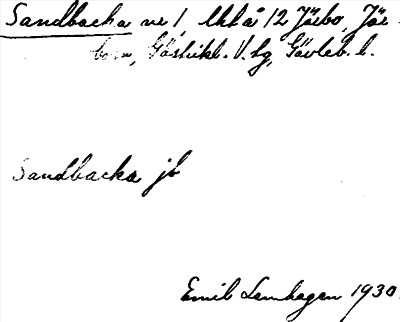 Sandbacka nr 1, Mtl å 12 Järbo, Jär-
bo sn, Gästrikl. V. tg, Gävleb. l.
Sandbacka jb
Emil Lenhagen 1930.